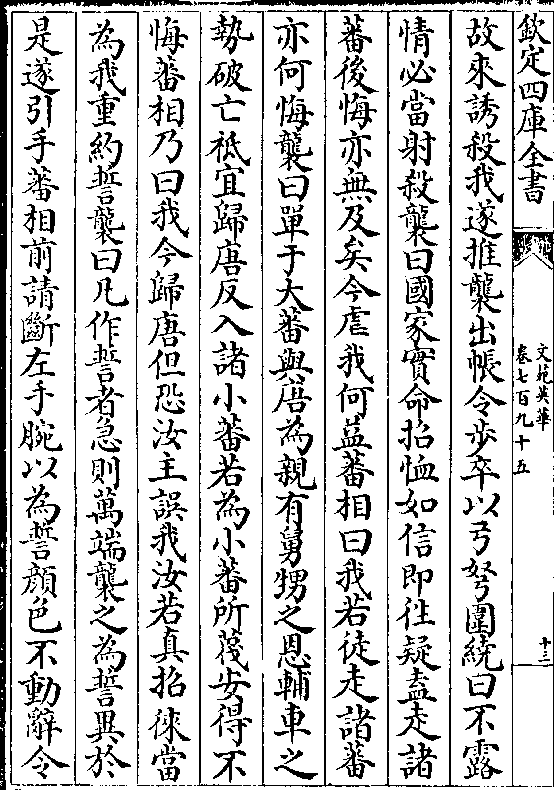 欽定四庫全書
文苑英華
卷七百九十五
十三
故來誘殺我遂推襲出帳令步卒以弓弩圍繞曰不露
情必當射殺襲曰國家實命招恤如信即往疑盍走諸
蕃後悔亦無及矣今虐我何益蕃相曰我若徒走諸蕃
亦何悔襲曰單于大蕃與唐為親有舅甥之恩輔車之
勢破亡秪宜歸唐反入諸小蕃若為小蕃所蔑安得不
悔蕃相乃曰我今歸唐但恐汝主誤我汝若真招徠當
為我重約誓襲曰凡作誓者急則萬端襲之為誓異於
是遂引手蕃相前請斷左手腕以為誓顔色不動辭令